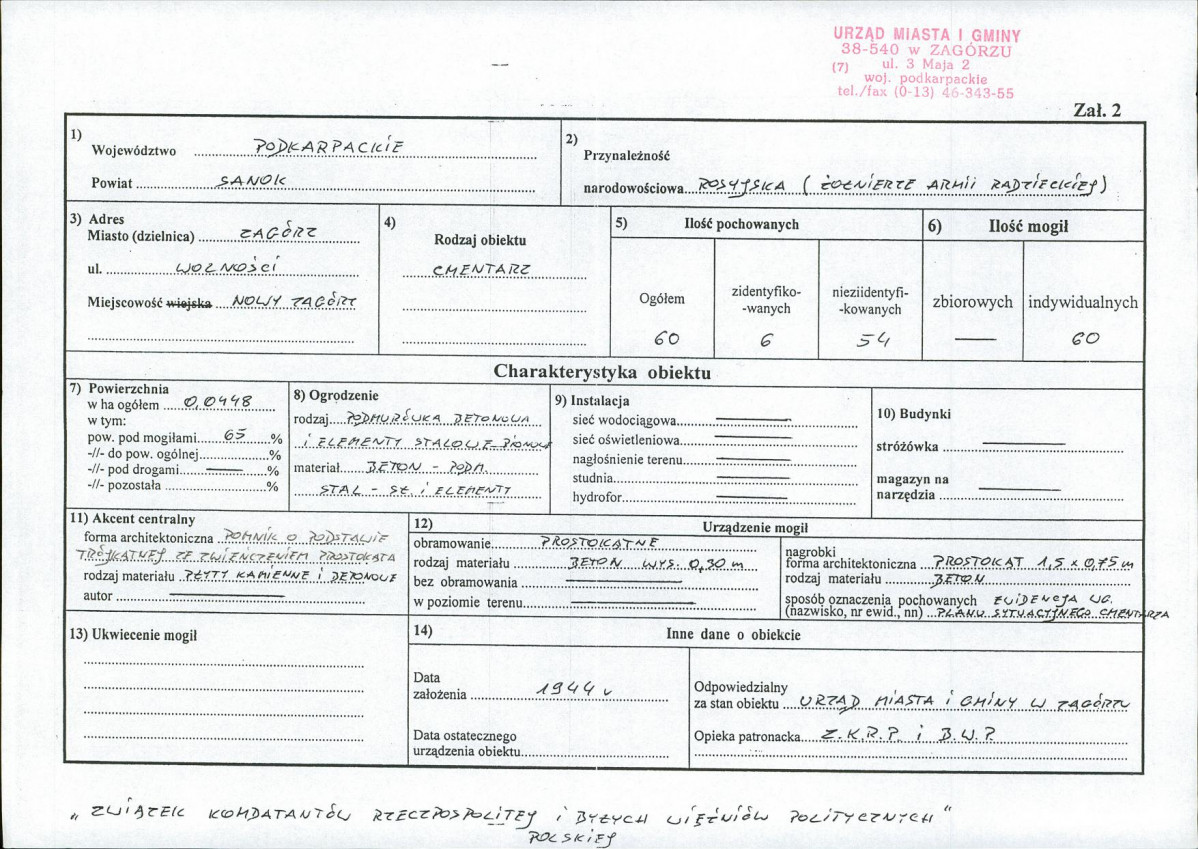 URZĄD MIASTA I GMINY
38-540 w ZAGÓRZU
(7) ul. 3 Maja 2
woj. podkarpackie
tel./fax (0-13) 46-343-55
Zał. 2
1)
Województwo PODKARPACKIE
Powiat SANOK
2)
Przynależność
narodowościowa ROSYJSKA (ŻOŁNIERZE ARMII RADZIECKIEJ)
3) Adres
Miasto (dzielnica) ZAGÓRZ
ul. WOLNOŚCI
Miejscowość wiejska NOWY ZAGÓRZ
4)
Rodzaj obiektu
CMENTARZ
5) Ilość pochowanych
Ogółem
60
zidentyfiko-
-wanych
6
nieziidentyfi-
-kowanych
54
6) Ilość mogił
zbiorowych
—
indywidualnych
60
Charakterystyka obiektu
7) Powierzchnia
w ha ogółem 0,0448
w tym:
pow. pod mogiłami 65 %
-//- do pow. ogólnej %
-//- pod drogami — %
-//- pozostała %
8) Ogrodzenie
rodzaj PODMURÓWKA BETONOWA
I ELEMENTY STALOWE PIONOWE
materiał BETON - PODM.
STAL - SŁ. I ELEMENTY
9) Instalacja
sieć wodociągowa —
sieć oświetleniowa —
nagłośnienie terenu —
studnia —
hydrofor —
10) Budynki
stróżówka —
magazyn na —
narzędzia
11) Akcent centralny
forma architektoniczna POMNIK O PODSTAWIE
TRÓJKĄTNEJ ZE ZWIEŃCZENIEM PROSTOKĄTA
rodzaj materiału PŁYTY KAMIENNE I BETONOWE
autor —
12) Urządzenie mogił
obramowanie PROSTOKĄTNE
rodzaj materiału BETON WYS. 0,30 m
bez obramowania —
w poziomie terenu —
nagrobki
forma architektoniczna PROSTOKĄT 1,5 x 0,75 m
rodzaj materiału BETON
sposób oznaczenia pochowanych EWIDENCJA WG.
(nazwisko, nr ewid., nn) PLANU SYTUACYJNEGO CMENTARZA
13) Ukwiecenie mogił
14) Inne dane o obiekcie
Data
założenia 1944 r
Data ostatecznego
urządzenia obiektu
Odpowiedzialny
za stan obiektu URZĄD MIASTA I GMINY W ZAGÓRZU
Opieka patronacka Z.K.R.P. i B.W.P.
„ZWIĄZEK KOMBATANTÓW RZECZPOSPOLITEJ i BYŁYCH WIĘŹNIÓW POLITYCZNYCH"
POLSKIEJ